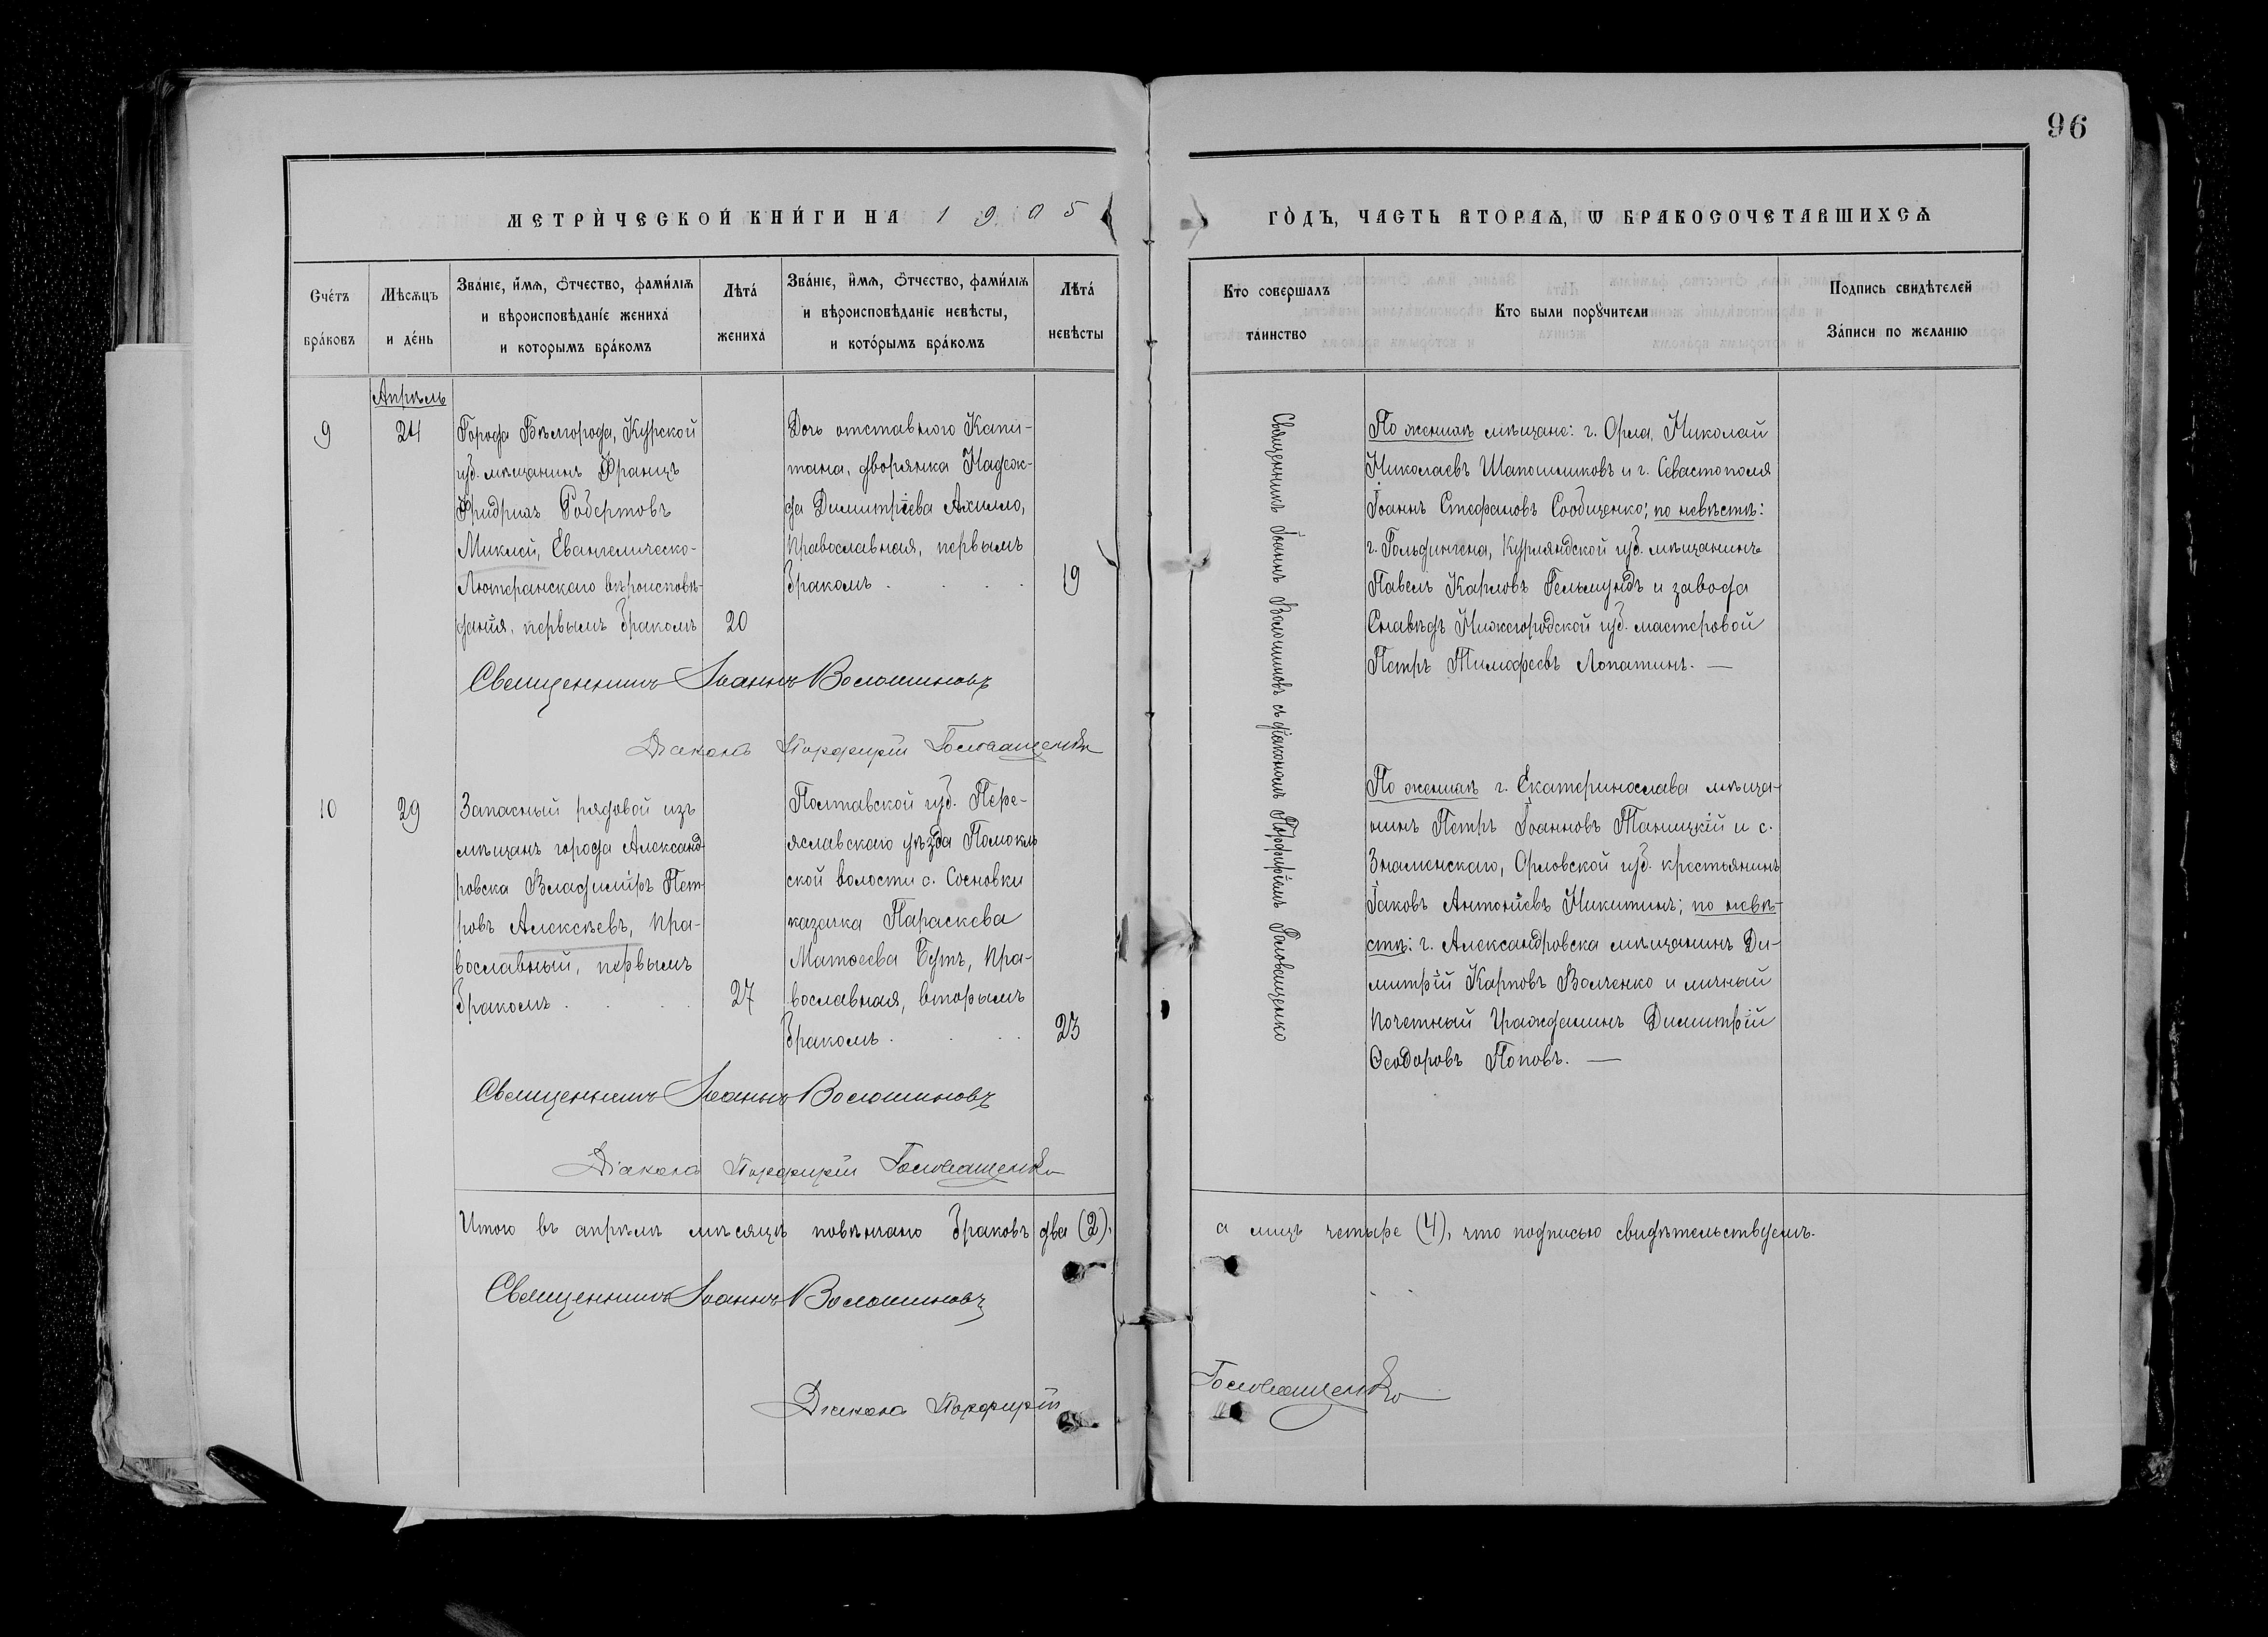 96
МЕТРИ́ЧЕСКОЙ КНИ́ГИ НА 1905
ГО́ДЪ, ЧАСТЬ ВТОРАѦ, Ѡ БРАКОСОЧЕТАВШИХСѦ
Сче́тъ бра́ковъ
Мѣсѧцъ и де́нь
Зва́нїе, и҆́мѧ, ѻ҆́тчество, фами́лїѧ и вѣроисповѣ́данїе жениха̀ и которымъ бра́комъ
Лѣта́ жениха̀
Зва́нїе, и҆́мѧ, ѻ҆́тчество, фами́лїѧ и вѣроисповѣ́данїе невѣ́сты, и кото́рымъ бра́комъ
Лѣта́ невѣ́сты
Кто совершалъ таинство
Кто были порꙋчители
Подпись свидѣтелей За́писи по желанїю
Апрѣль
9
24
Города Бѣлгорода, Курской
губ. мѣщанинъ Францъ
Фридрихъ Робертовъ
Миклей, Евангелическо-
Лютеранскаго вѣроисповѣ-
данія, первымъ бракомъ
20
Дочь отставного Капи-
тана, дворянка Надеж-
да Димитріева Ахилло,
православная, первымъ
бракомъ . . .
19
Священникъ Іоаннъ Волошиновъ съ діакономъ Порфиріемъ Головащенко
По женихѣ мѣщане: г. Орла, Николай
Николаевъ Шапошниковъ и г. Севастополя
Іоаннъ Стефановъ Сообщенко; по невѣстѣ:
г. Гольдингена, Курляндской губ. мѣщанинъ
Павелъ Карловъ Гельмундъ и завода
Снаведъ Нижегородской губ. мастеровой
Петръ Тимофеевъ Лопатинъ. —
Священникъ Іоаннъ Волошиновъ
Діаконъ Порфирій Головащенко
10
29
Запасный рядовой изъ
мѣщанъ города Александ-
ровска Владиміръ Пет-
ровъ Алексѣевъ, пра-
вославный, первымъ
бракомъ . . .
27
Полтавской губ. Пере-
яславскаго уѣзда Помокль
ской волости с. Сосновки
казачка Параскева
Матѳеева Бутъ, пра-
вославная, вторымъ
бракомъ . . .
23
По женихѣ г. Екатеринослава мѣща-
нинъ Петръ Іоанновъ Таницкій и с.
Знаменскаго, Орловской губ. крестьянинъ
Іаковъ Антоніевъ Никитинъ; по невѣ-
стѣ: г. Александровска мѣщанинъ Ди-
митрій Карповъ Волченко и личный
почетный гражданинъ Димитрій
Ѳеодоровъ Поповъ. —
Священникъ Іоаннъ Волошиновъ
Діаконъ Порфирій Головащенко
Итого въ апрѣлѣ мѣсяцѣ повѣнчано браковъ два (2),
а лицъ четыре (4), что подписью свидѣтельствуемъ.
Священникъ Іоаннъ Волошиновъ
Діаконъ Порфирій Головащенко